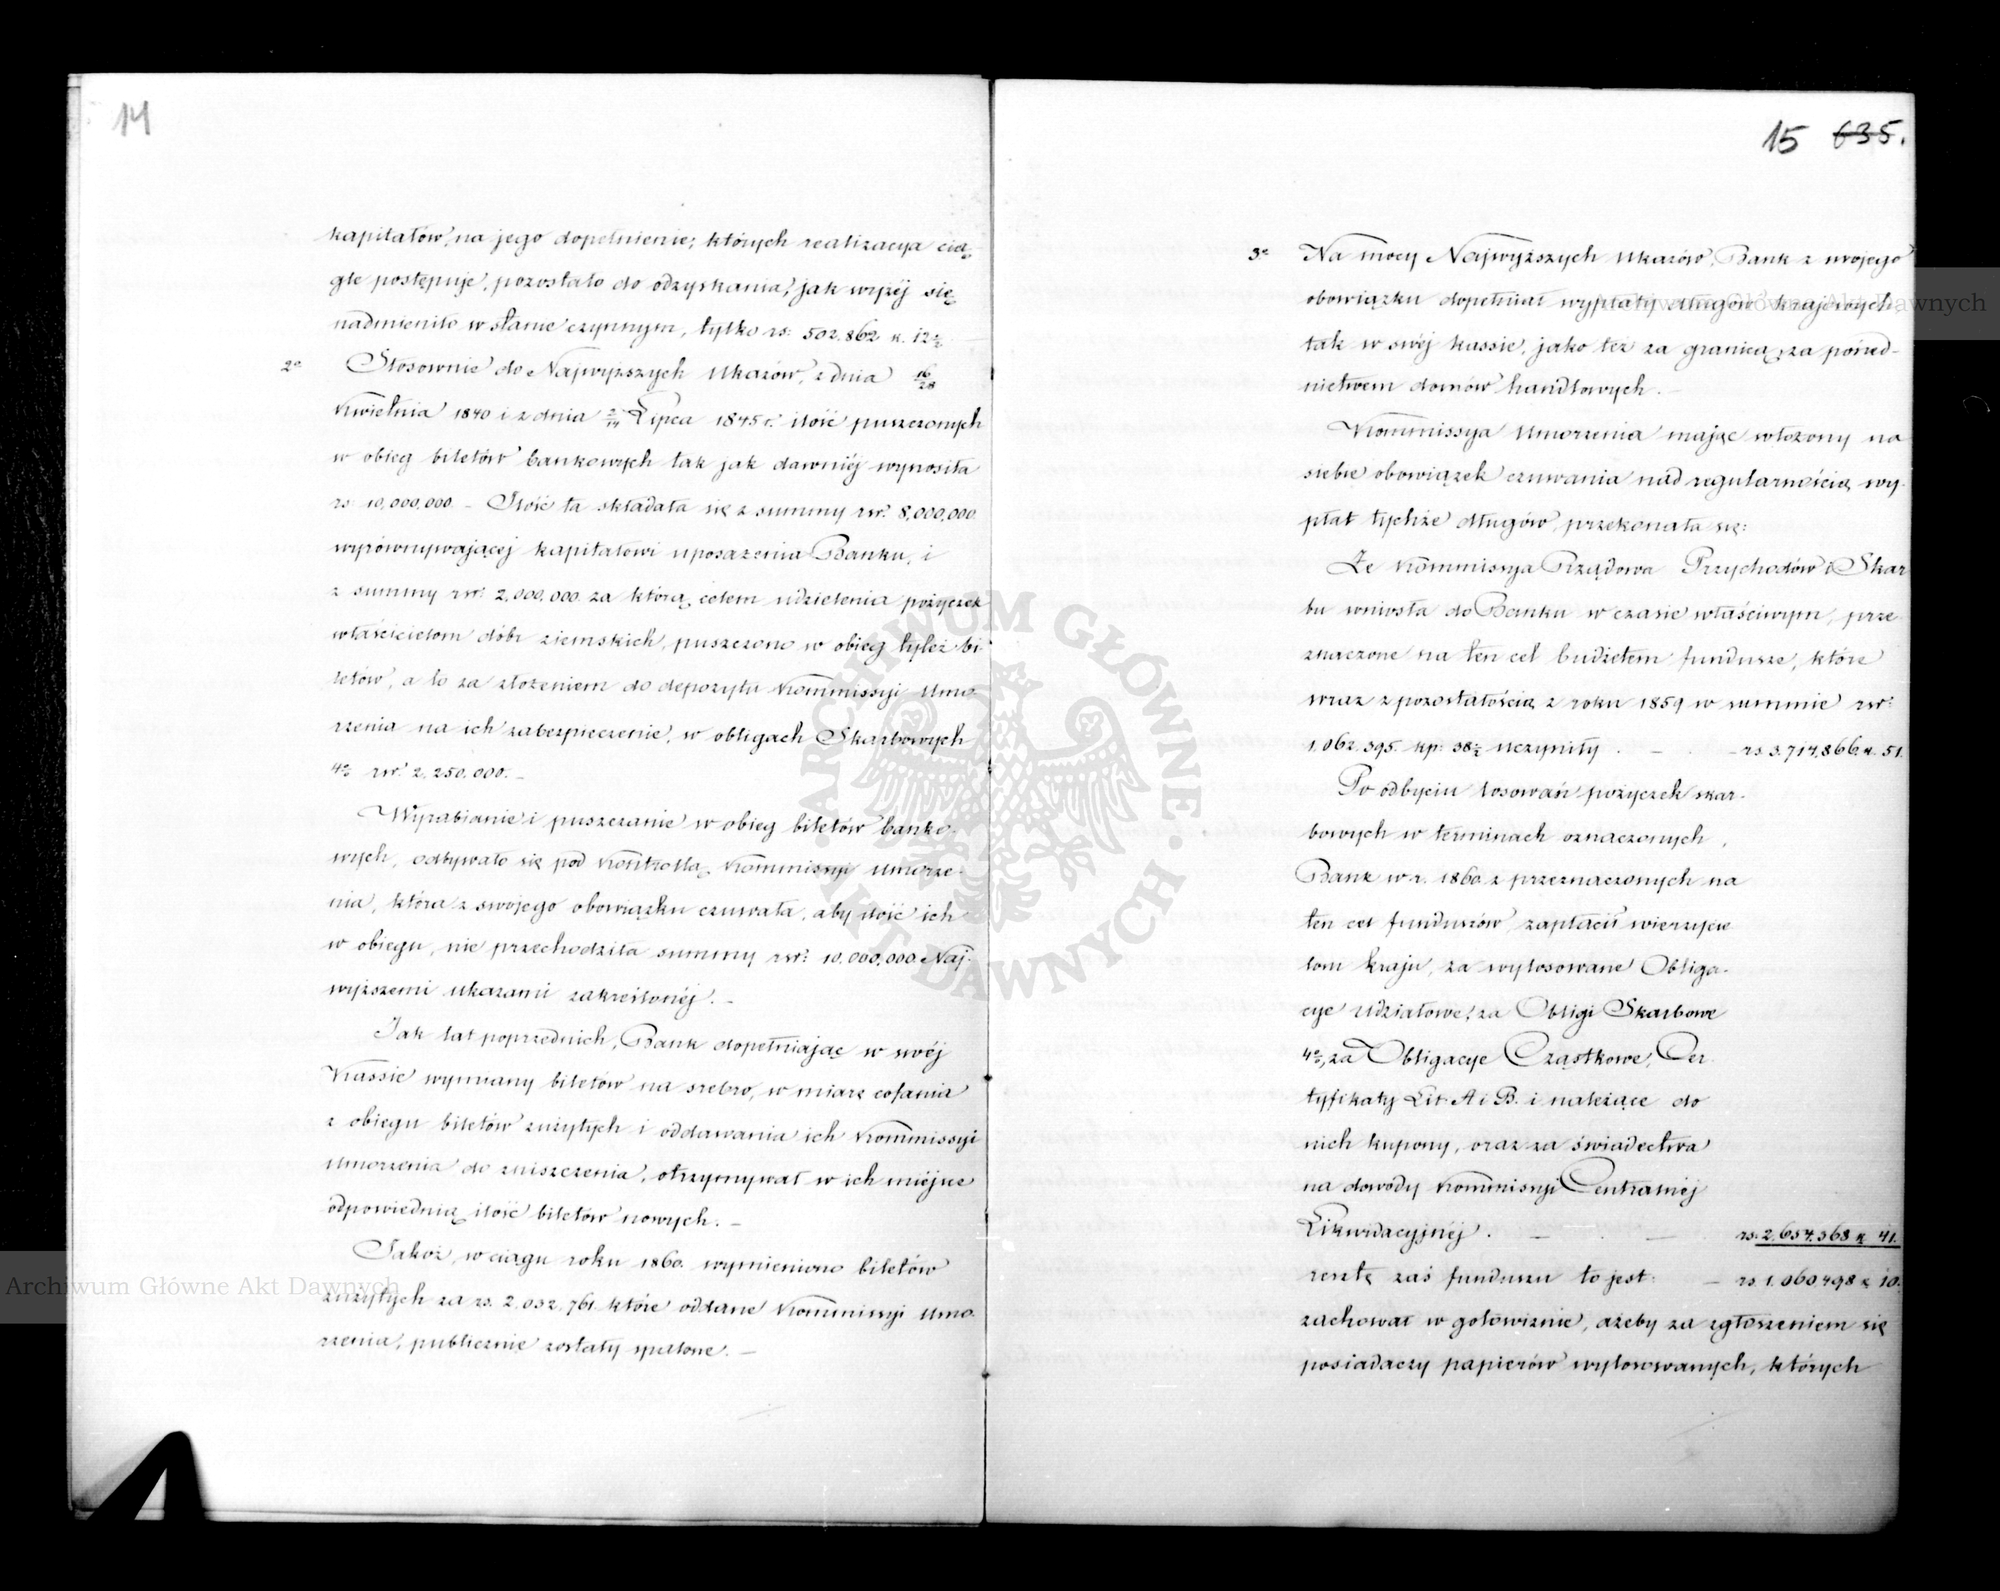 14
kapitałów, na jego dopełnienie; których realizacya cią-
gle postępuje, pozostało do odzyskania, jak wyżej się
nadmieniło w stanie czynnym, tylko rs: 502.862 k. 12½
2° Stosownie do Najwyższych Ukazów, z dnia 16/28
Kwietnia 1840 i z dnia 2/14 Lipca 1845 r. ilość puszczonych
w obieg biletów bankowych tak jak dawniéj wynosiła
rs: 10,000,000 – Ilość ta składała się z summy rsr: 8,000,000
wyrównywającej kapitałowi uposażenia Banku, i
z summy rsr: 2,000,000 za którą celem udzielenia pożyczek
właścicielom dóbr ziemskich, puszczono w obieg tyleż bi
letów, a to za złożeniem do depozytu Kommissyi Umo-
rzenia na ich zabezpieczenie, w obligach Skarbowych
4% rsr: 2,250,000. –
Wyrabianie i puszczanie w obieg biletów banko-
wych, odbywało się pod Kontrollą Kommissyi Umorze-
nia, która z swojego obowiązku czuwała, aby ilość ich
w obiegu, nie przechodziła summy rsr: 10,000,000. Naj-
wyższemi Ukazami zakreślonéj. –
Jak lat poprzednich, Bank dopełniając w swéj
Kassie wymiany biletów na srebro, w miarę cofania
z obiegu biletów zużytych i oddawania ich Kommissyi
Umorzenia do zniszczenia, otrzymywał w ich miéjsce
odpowiednią ilość biletów nowych. –
Jakoż, w ciągu roku 1860. wymieniono biletów
zużytych za rs. 2,032,761 które oddane Kommissyi Umo-
rzenia, publicznie zostały spalone. –
15 635.
3° Na mocy Najwyższych Ukazów, Bank z swojego
obowiązku dopełniał wypłaty długów krajowych,
tak w swéj kassie, jako też za granicą, za pośred-
nictwem domów handlowych. –
Kommissya Umorzenia mając włożony na
siebie obowiązek czuwania nad regularnością wy-
płat tychże długów, przekonała się:
Że Kommissya Rządowa Przychodów i Skar
bu wniosła do Banku w czasie właściwym, prze-
znaczone na ten cel budżetem fundusze, które
wraz z pozostałością z roku 1859 w summie rsr:
1,062,395. kp: 38½ uczyniły . – . – rs 3,714,866. k. 51.
Po odbyciu losowań pożyczek skar-
bowych w terminach oznaczonych,
Bank w r. 1860 z przeznaczonych na
ten cel funduszów, zapłacił wierzycie
lom kraju, za wylosowane Obliga-
cye Udziałowe, za Obligi Skarbowe
4%, za Obligacye Cząstkowe, Cer-
tyfikaty Lit: A i B. i należące do
nich kupony, oraz za świadectwa
na dowody Kommissyi Centralnéj
Likwidacyjnéj . – . – . rs. 2,654,368 k 41.
resztę zaś funduszu to jest: – rs 1,060,498 k 10.
zachował w gotowiznie, ażeby za zgłoszeniem się
posiadaczy papierów wylosowanych, których
ARCHIWUM GŁÓWNE AKT DAWNYCH
Archiwum Główne Akt Dawnych
Archiwum Główne Akt Dawnych